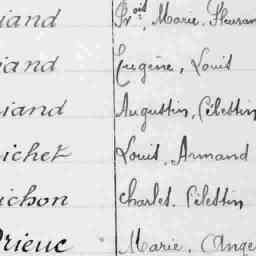 iand Frois, Marie, Fleuran
iand Eugène, Louis
iand Augustin, Célestin
ichet Louis, Armand
ichon Charles, Célestin
rieuc Marie, Ange